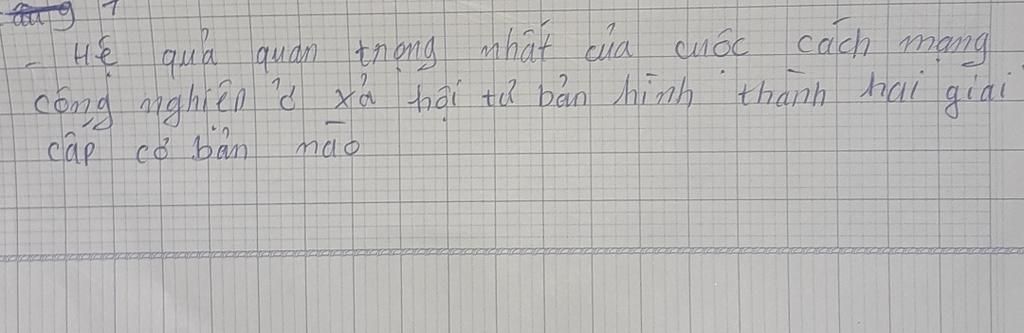 - Hệ quả quan trọng nhất của cuộc cách mạng
công nghiên ở xả hội tư bản hình thành hai giai
cấp cơ bản nào